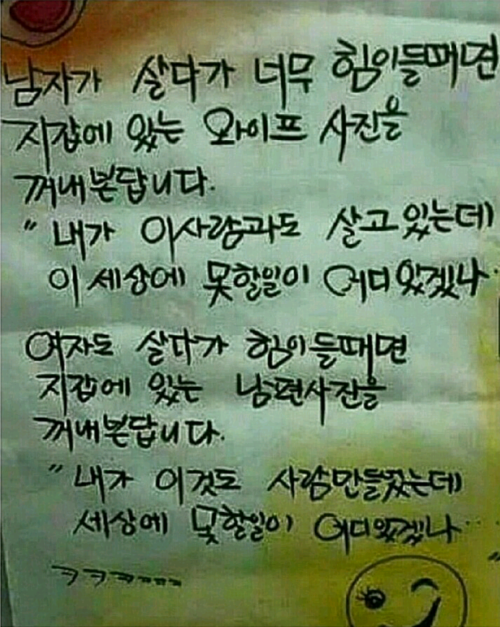 남자가 살다가 너무 힘이들때면
지갑에 있는 와이프 사진을
꺼내본답니다.
"내가 이사람과도 살고있는데
이 세상에 못할일이 어디있겠나..
여자도 살다가 힘이들때면
지갑에 있는 남편사진을
꺼내본답니다.
"내가 이것도 사람만들었는데
세상에 못할일이 어디있겠나..
ㅋㅋㅋㅋㅋㅋ